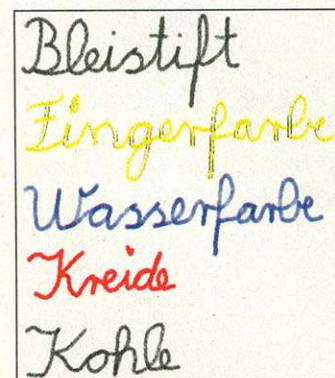 Bleistift
Fingerfarbe
Wasserfarbe
Kreide
Kohle